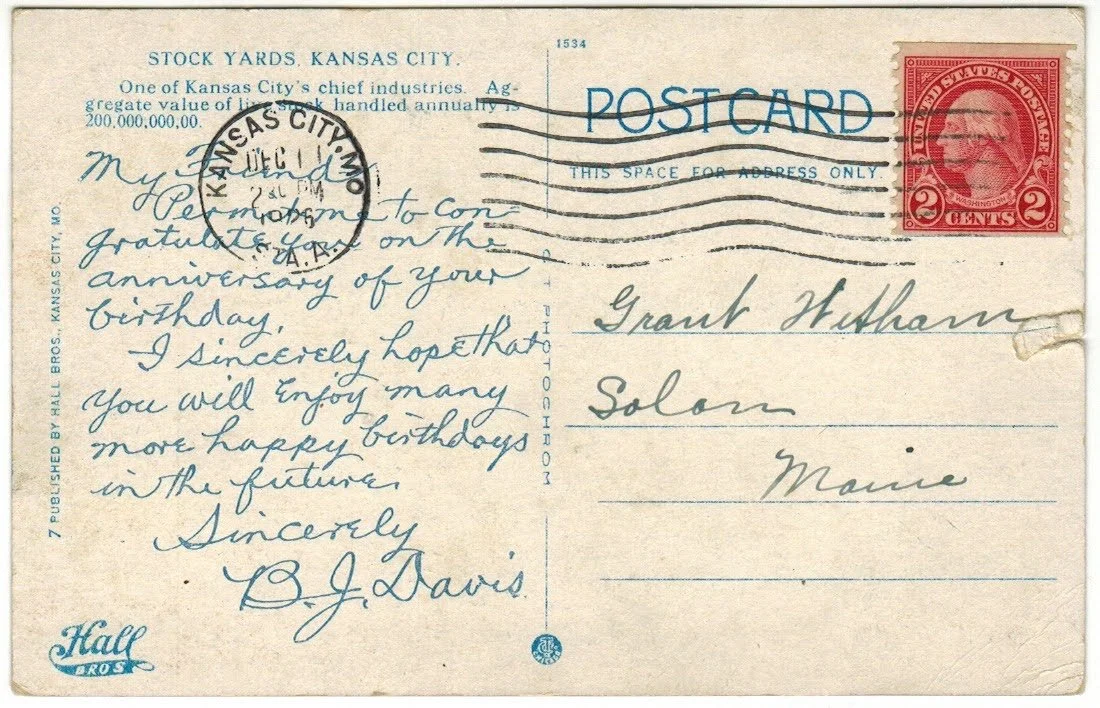 STOCK YARDS, KANSAS CITY.
One of Kansas City's chief industries. Ag-
gregate value of live stock handled annually is
200,000,000,00.
My Friend
Permit me to con-
gratulate you on the
anniversary of your
birthday.
I sincerely hope that
you will Enjoy many
more happy birthdays
in the future.
Sincerely
B. J. Davis
Hall
BROS
7 PUBLISHED BY HALL BROS., KANSAS CITY, MO.
KANSAS CITY, MO
DEC 11
PM
1926
S.A.
1534
POST CARD
THIS SPACE FOR ADDRESS ONLY
C T PHOTOCHROM
UNITED STATES POSTAGE
WASHINGTON
2 CENTS 2
Grant Witham
Solon
Maine